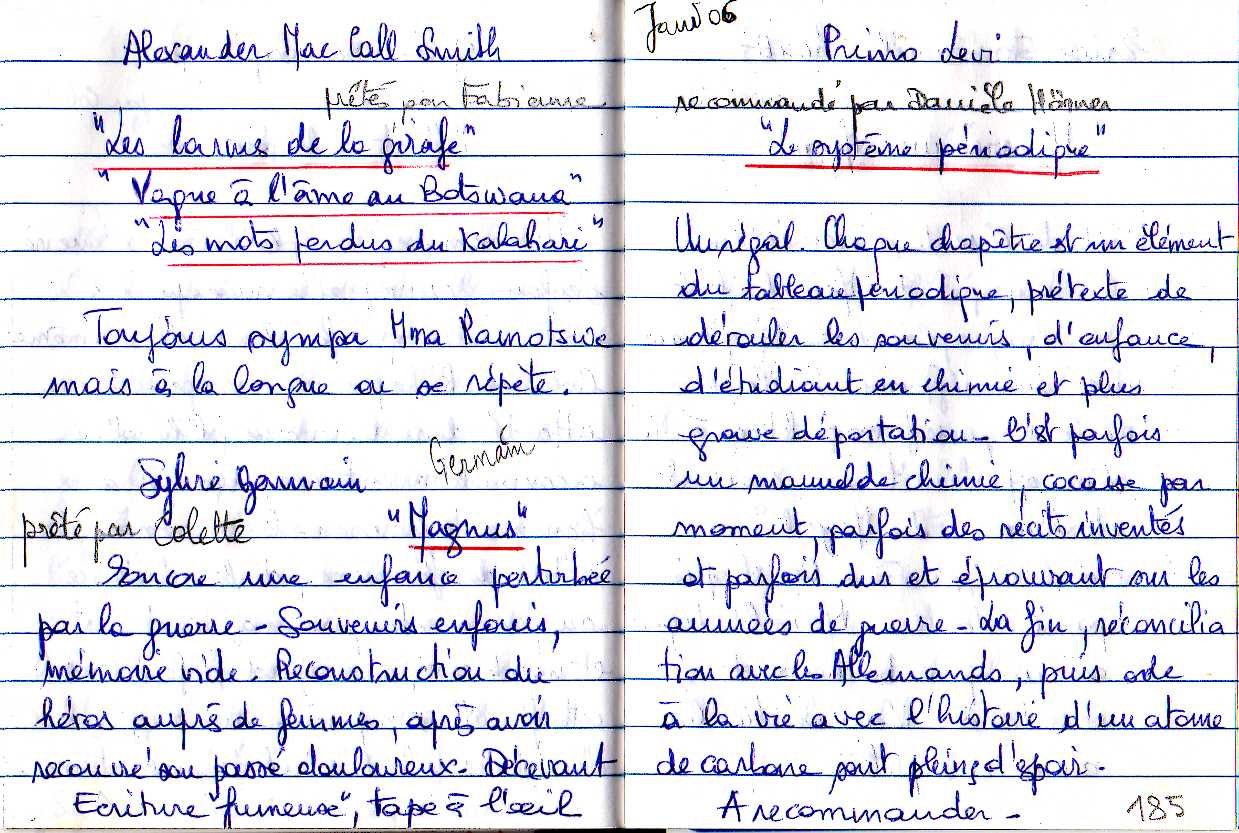 Alexander Mac Call Smith
prêtés par Fabienne
"Les larmes de la girafe"
"Vague à l'âme au Botswana"
"Les mots perdus du Kalahari"
Toujours sympa Mma Ramotswe
mais à la longue on se répète.
Germain
Sylvie Germain
prêté par Colette "Magnus"
Encore une enfance perturbée
par la guerre - Souvenirs enfouis,
mémoire vide. Reconstruction du
héros auprès de femmes, après avoir
recouvré son passé douloureux. Décevant
Ecriture "fumeuse", tape à l'œil
Janv 06
Primo Levi
recommandé par Danièle
"Le système périodique"
Un régal. Chaque chapître est un élément
du tableau périodique, prétexte de
dérouler les souvenirs, d'enfance,
d'étudiant en chimie et plus
grave déportation - C'est parfois
un manuel de chimie, cocasse par
moment, parfois des récits inventés
et parfois durs et éprouvant sur les
années de guerre - La fin, réconcilia
tion avec les Allemands, puis ode
à la vie avec l'histoire d'un atome
de carbone sont pleins d'espoir.
A recommander -
185